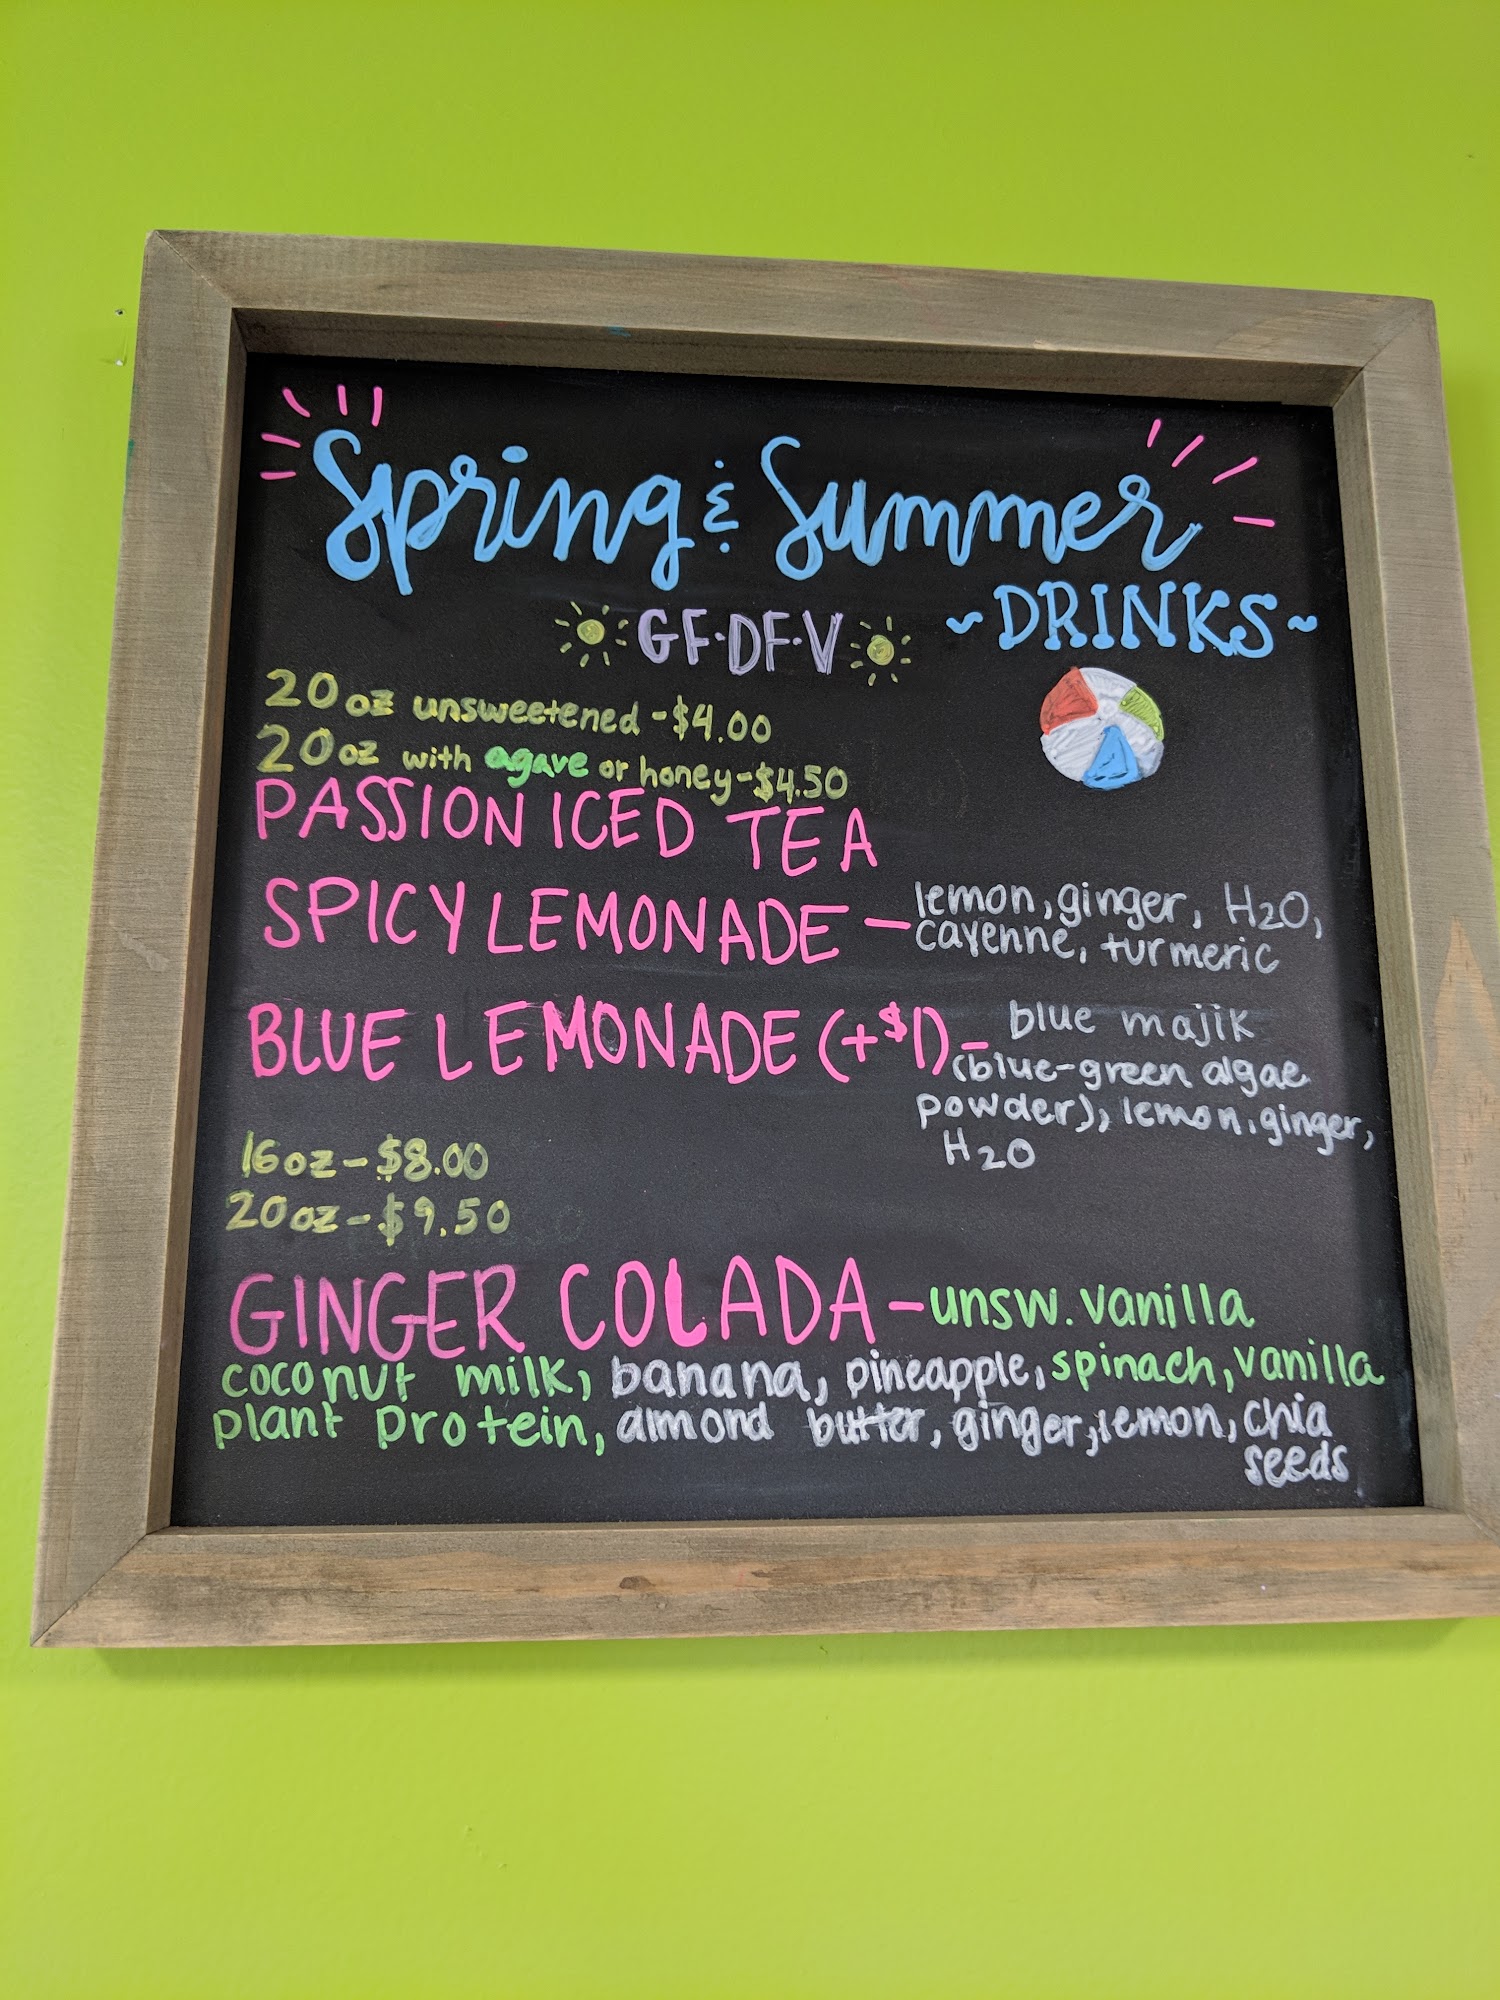 Spring & Summer
~DRINKS~
GF·DF·V
20oz unsweetened -$4.00
20oz with agave or honey-$4.50
PASSION ICED TEA
SPICY LEMONADE - lemon, ginger, H2O,
cayenne, turmeric
BLUE LEMONADE (+$1)- blue majik
(blue-green algae
powder), lemon, ginger,
H2O
16oz-$8.00
20oz-$9.50
GINGER COLADA-unsw. vanilla
coconut milk, banana, pineapple, spinach, vanilla
plant protein, almond butter, ginger, lemon, chia
seeds